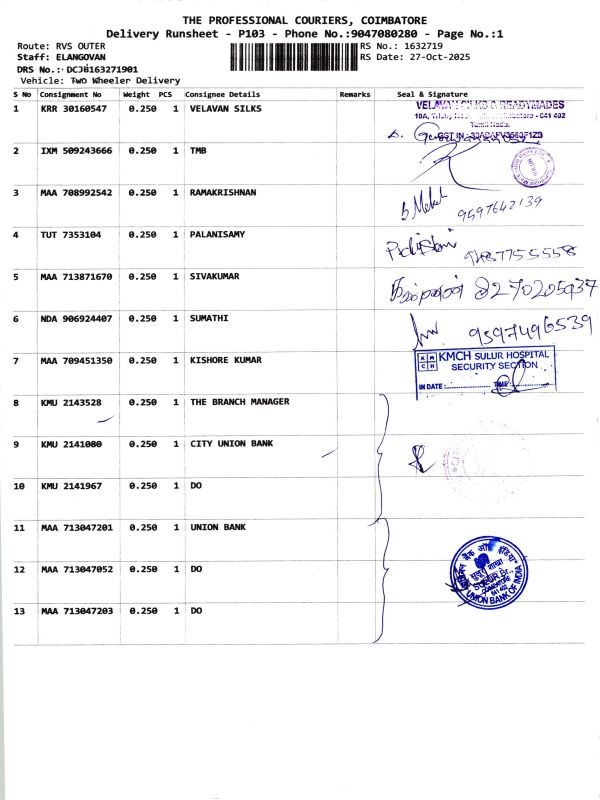 THE PROFESSIONAL COURIERS, COIMBATORE
Delivery Runsheet - P103 - Phone No.:9047080280 - Page No.:1
Route: RVS OUTER
RS No.: 1632719
Staff: ELANGOVAN
RS Date: 27-Oct-2025
DRS No.: DCJB163271901
Vehicle: Two Wheeler Delivery
S No Consignment No Weight PCS Consignee Details Remarks Seal & Signature
1 KRR 30160547 0.250 1 VELAVAN SILKS
VELAVAN SILKS & READYMADES
10A, Coimbatore - 641 402
Tamil Nadu
GST IN
2 IXM 509243666 0.250 1 TMB
3 MAA 708992542 0.250 1 RAMAKRISHNAN
9597642139
4 TUT 7353104 0.250 1 PALANISAMY
5 MAA 713871670 0.250 1 SIVAKUMAR
8270205937
6 NDA 906924407 0.250 1 SUMATHI
9597496539
7 MAA 709451350 0.250 1 KISHORE KUMAR
KMCH SULUR HOSPITAL
SECURITY SECTION
IN DATE: TIME:
8 KMU 2143528 0.250 1 THE BRANCH MANAGER
9 KMU 2141080 0.250 1 CITY UNION BANK
10 KMU 2141967 0.250 1 DO
11 MAA 713047201 0.250 1 UNION BANK
12 MAA 713047052 0.250 1 DO
13 MAA 713047203 0.250 1 DO
UNION BANK OF INDIA